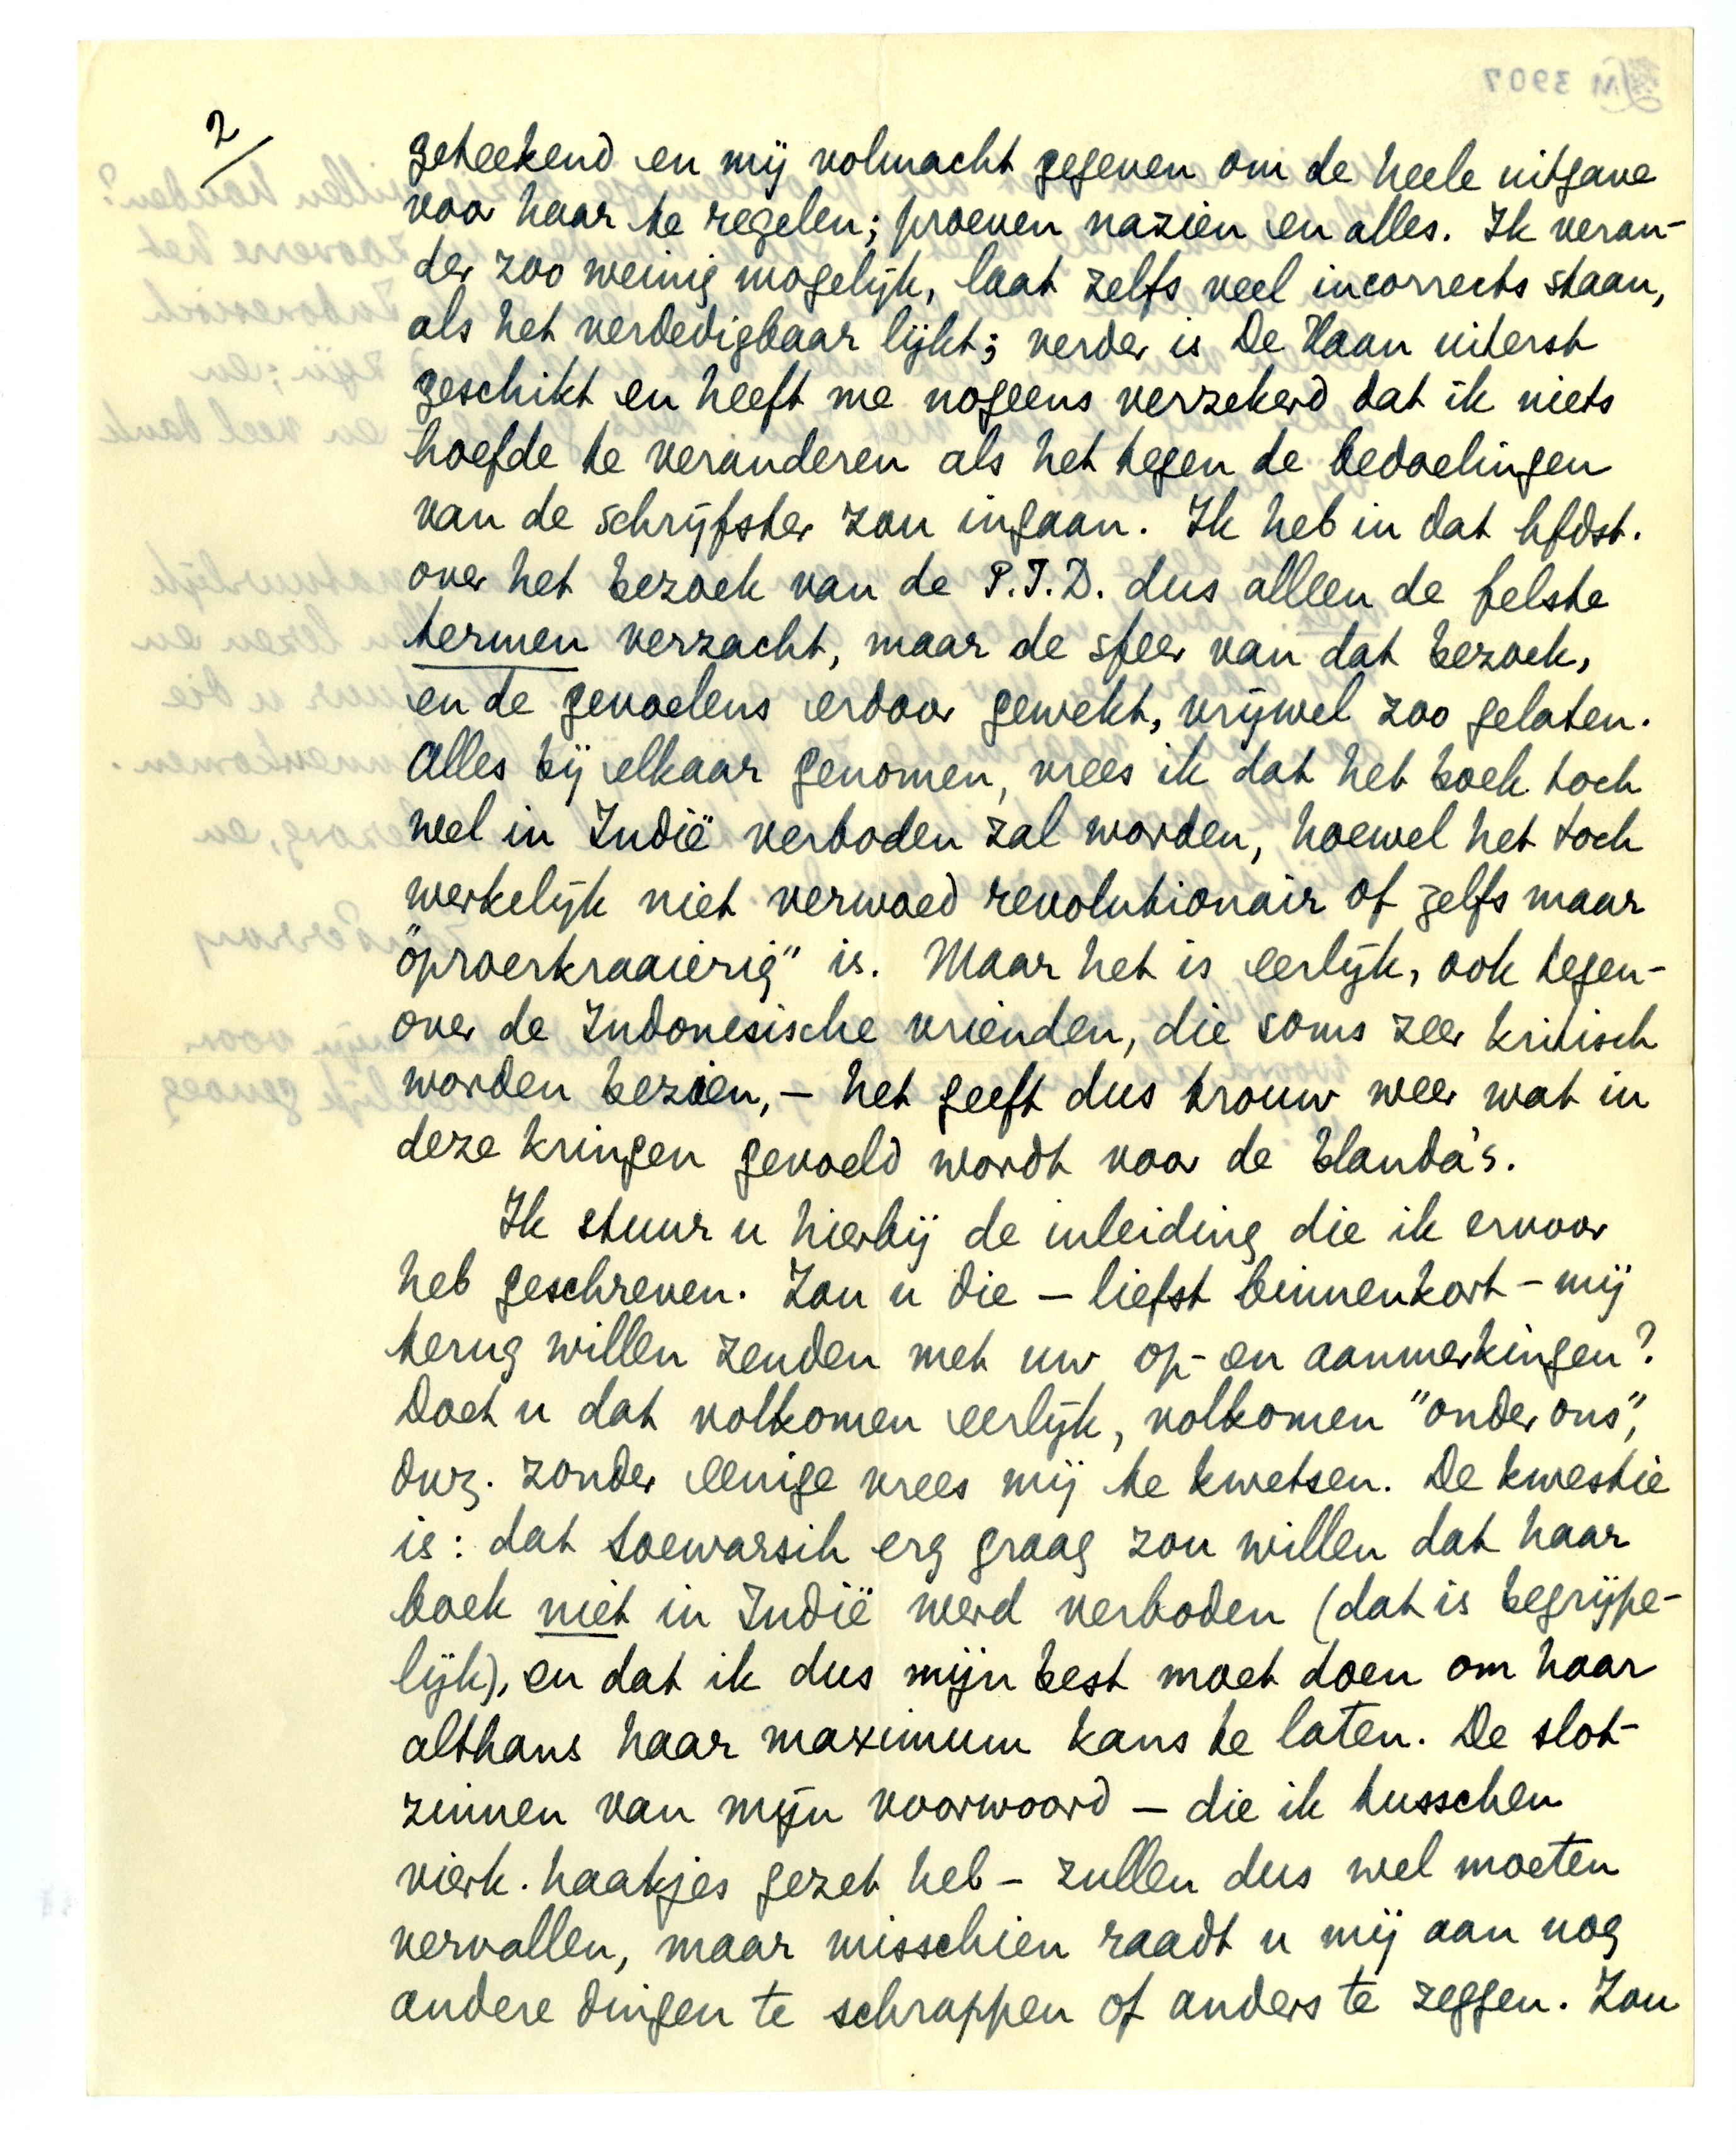 2/
geteekend en mij volmacht gegeven om de heele uitgave
voor haar te regelen; proeven nazien en alles. Ik veran-
der zoo weinig mogelijk, laat zelfs veel incorrects staan,
als het verdedigbaar lijkt; verder is De Haan uiterst
geschikt en heeft me nogeens verzekerd dat ik niets
hoefde te veranderen als het tegen de bedoelingen
van de schrijfster zou ingaan. Ik heb in dat hfdst.
over het bezoek van de P.I.D. dus alleen de felste
termen verzacht, maar de sfeer van dat bezoek,
en de gevoelens erdoor gewekt, vrijwel zoo gelaten.
Alles bij elkaar genomen, vrees ik dat het boek toch
wel in Indië verboden zal worden, hoewel het toch
werkelijk niet verwoed revolutionair of zelfs maar
"oproerkraaierig" is. Maar het is eerlijk, ook tegen-
over de Indonesische vrienden, die soms zeer kritisch
worden bezien, – het geeft dus trouw weer wat in
deze kringen gevoeld wordt voor de blanda's.
Ik stuur u hierbij de inleiding die ik ervoor
heb geschreven. Zou u die – liefst binnenkort – mij
terug willen zenden met uw op- en aanmerkingen?
Doet u dat volkomen eerlijk, volkomen "onder ons",
dwz. zonder eenige vrees mij te kwetsen. De kwestie
is: dat Soewarsih erg graag zou willen dat haar
boek niet in Indië werd verboden (dat is begrijpe-
lijk), en dat ik dus mijn best moet doen om haar
althans haar maximum kans te laten. De slot-
zinnen van mijn voorwoord – die ik tusschen
vierk. haakjes gezet heb – zullen dus wel moeten
vervallen, maar misschien raadt u mij aan nog
andere dingen te schrappen of anders te zeggen. Zou